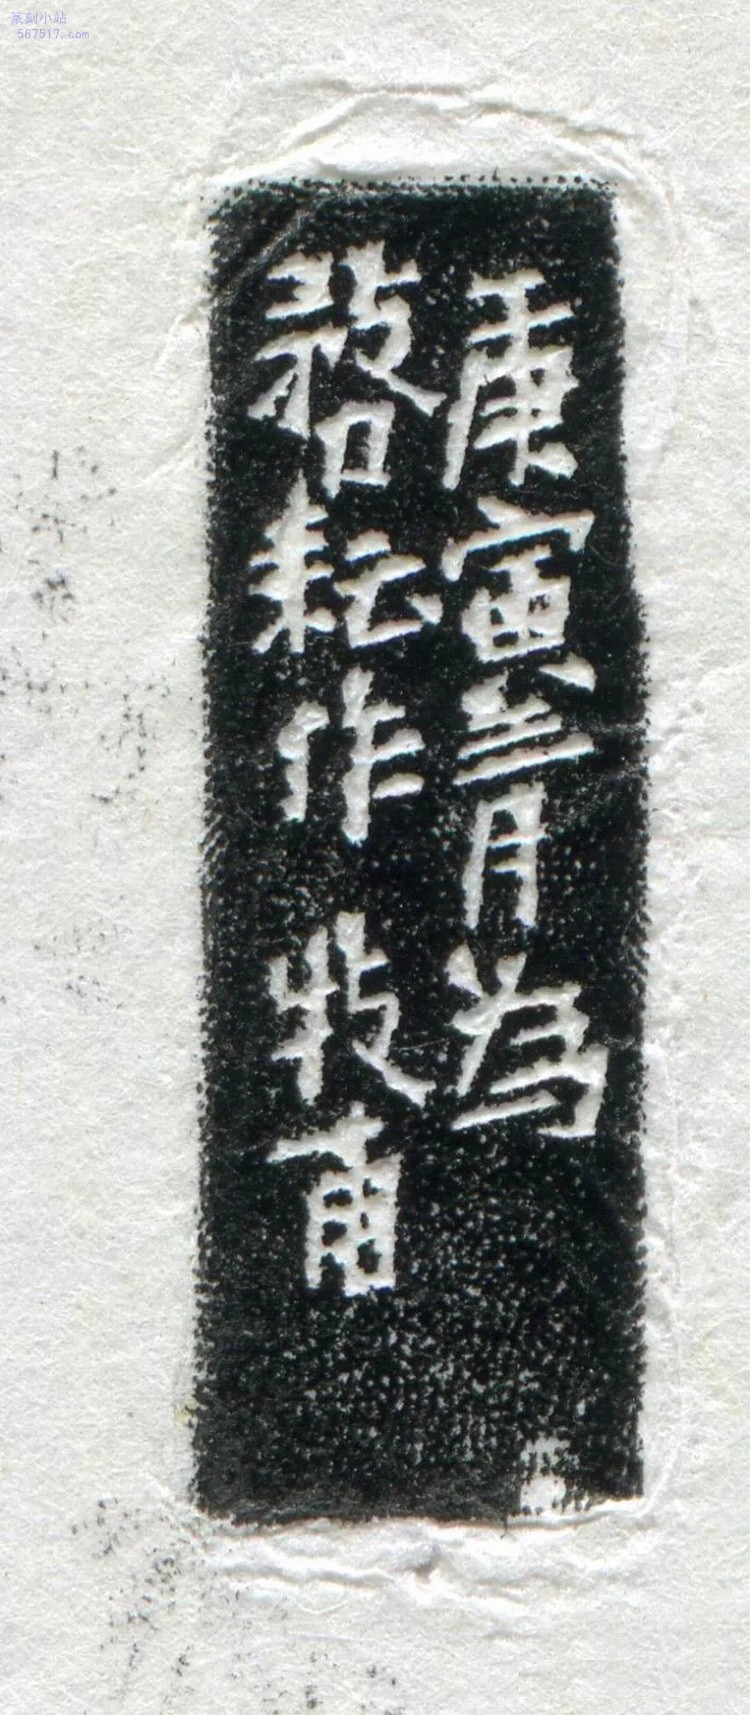 篆刻小站
567517.com
庚寅三月为
耘作 牧甫